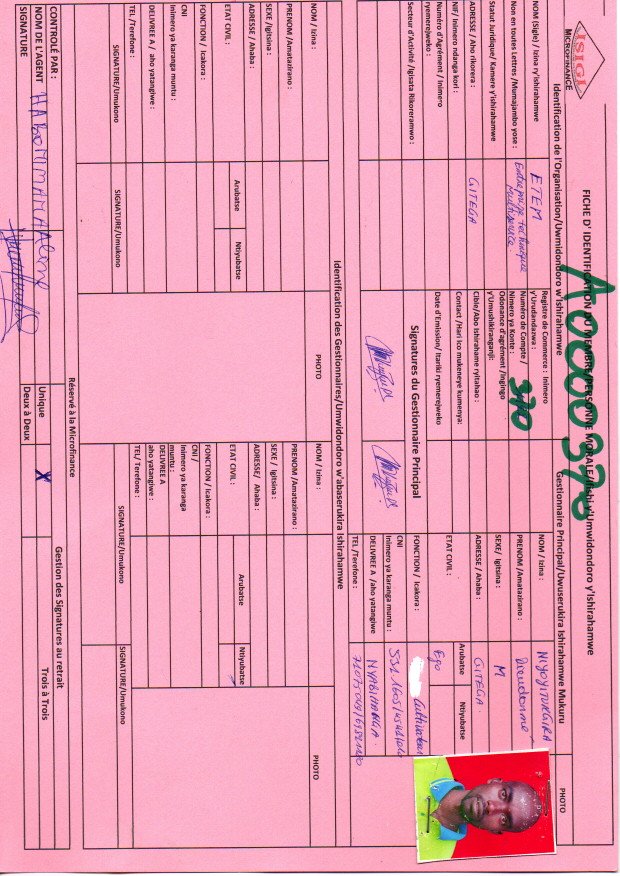 ISIGI
MICROFINANCE
FICHE D'IDENTIFICATION DU MEMBRE/PERSONNE MORALE/Ifishi y'Umwidondoro y'Ishirahamwe
A000370
Identification de l'Organisation/Uwmidondoro w'Ishirahamwe
Gestionnaire Principal/Uwuserukira Ishirahamwe Mukuru
PHOTO
NOM (Sigle) / Izina ry'ishirahamwe
ETEM
Non en toutes Lettres /Mumajambo yose :
Entreprise technique
Multiservice
Statut Juridique/ Kamere y'ishirahamwe
ADRESSE / Aho rikorera :
GITEGA
NIF/ Inimero ndanga kori :
Numéro d'Agrément / Inimero
ryemerejweko :
Secteur d'Activité /Igisata Rikoreramwo :
Registre de Commerce : Inimero
y'Urudandazwa :
Numéro de Compte /
Nimero ya Konte :
370
Odonance d'agrément /Ingingo
y'Umushikiranganji:
Cible/Abo Ishirahame ryitaho :
Contact /Hari ico mukeneye kumenya:
Date d'Emission/ Itariki ryemerejweko
Signatures du Gestionnaire Principal
NOM / Izina :
NIYOYITUNGIRA
PRENOM /Amatazirano :
Dieudonné
SEXE/ Igitsina :
M
ADRESSE / Ahaba :
GITEGA
ETAT CIVIL :
Arubatse
Ntiyubatse
Ego
FONCTION / Icakora :
Cultivateur
CNI
Inimero ya karanga muntu :
DELIVREE A /aho yatangiwe
NYABIHANGA
TEL /Terefone :
Identification des Gestionnaires/Umwidondoro w'abaserukira Ishirahamwe
NOM / Izina :
PHOTO
PRENOM /Amatazirano :
SEXE /Igitsina :
ADRESSE / Ahaba :
ETAT CIVIL :
Arubatse
Ntiyubatse
FONCTION / Icakora :
CNI
Inimero ya karanga muntu :
DELIVREE A / aho yatangiwe :
TEL /Terefone :
SIGNATURE/Umukono
SIGNATURE/Umukono
NOM / Izina :
PHOTO
PRENOM /Amatazirano :
SEXE / Igitsina :
ADRESSE/ Ahaba :
ETAT CIVIL :
Arubatse
Ntiyubatse
FONCTION/ Icakora :
CNI /
Inimero ya karanga
muntu :
DELIVREE A
aho yatangiwe :
TEL/ Terefone :
SIGNATURE/Umukono
SIGNATURE/Umukono
Réservé à la Microfinance
CONTROLÉ PAR :
NOM DE L'AGENT
SIGNATURE
Gestion des Signatures au retrait
Unique
X
Trois à Trois
Deux à Deux